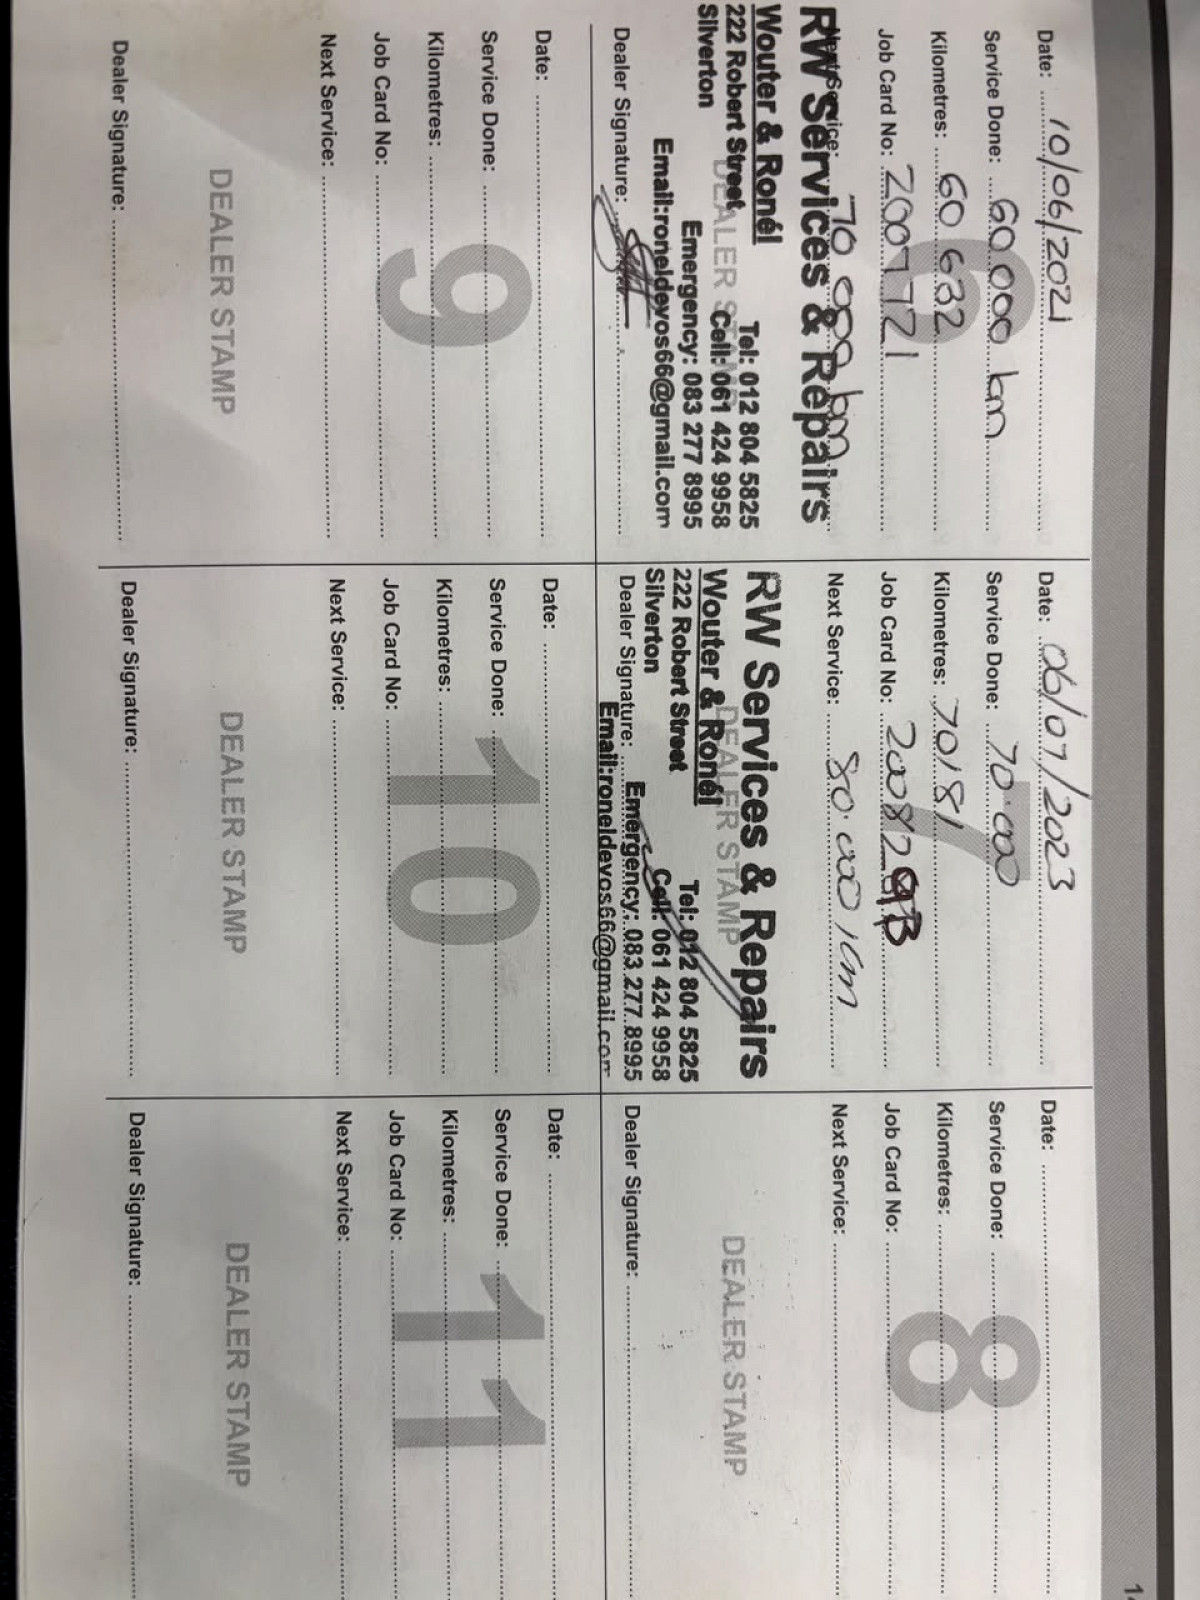 Date: 10/06/2021
Service Done: 60 000 km
Kilometres: 60 632
Job Card No: 2007721
Next Service: 70 000 km
RW Services & Repairs
Wouter & Ronél
222 Robert Street
Silverton
Tel: 012 804 5825
Cell: 061 424 9958
Emergency: 083 277 8995
Email:roneldevos66@gmail.com
DEALER STAMP
Dealer Signature:
6
Date: 06/07/2023
Service Done: 70.000
Kilometres: 70181
Job Card No:
Next Service: 80.000 km
RW Services & Repairs
Wouter & Ronél
222 Robert Street
Silverton
Tel: 012 804 5825
Cell: 061 424 9958
Emergency: 083 277 8995
Email:roneldevos66@gmail.com
DEALER STAMP
Dealer Signature:
7
Date:
Service Done:
Kilometres:
Job Card No:
Next Service:
8
DEALER STAMP
Dealer Signature:
Date:
Service Done:
Kilometres:
Job Card No:
Next Service:
9
DEALER STAMP
Dealer Signature:
Date:
Service Done:
Kilometres:
Job Card No:
Next Service:
10
DEALER STAMP
Dealer Signature:
Date:
Service Done:
Kilometres:
Job Card No:
Next Service:
11
DEALER STAMP
Dealer Signature: